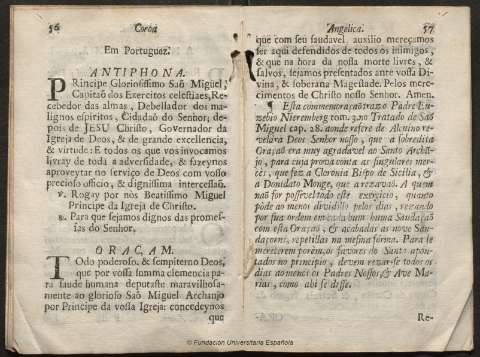 56 Coroa
Em Portuguez.
ANTIPHONA.
PRincipe Gloriosissimo Saõ Miguel,
Capitaõ dos Exercitos celestiaes, Re-
cebedor das almas, Debellador dos ma-
lignos espiritos, Cidadaõ do Senhor, de-
pois de JESU Christo, Governador da
Igreja de Deos, & de grande excellencia,
& virtude: E todos os que vos invocamos
livray de toda a adversidade, & fazeynos
aproveytar no serviço de Deos com vosso
precioso officio, & dignissima intercessaõ.
v. Rogay por nòs Beatissimo Miguel
Principe da Igreja de Christo.
R. Para que sejamos dignos das promes-
sas do Senhor.
ORAÇAM.
TOdo poderoso, & sempiterno Deos,
que por vossa summa clemencia pa-
ra saude humana deputaste maravilhosa-
mente ao glorioso Saõ Miguel Archanjo
por Principe da vossa Igreja: concedeynos
que
Angelica. 57
que com seu saudavel auxilio mereçamos
ser aqui defendidos de todos os inimigos,
& que na hora da nossa morte livres, &
salvos, sejamos presentados ante vossa Di-
vina, & soberana Magestade. Pelos mere-
cimentos de Christo nosso Senhor. Amen.
¶ Esta commemoraçaõ traz o Padre Eu-
sebio Nieremberg tom. 3. no Tratado de Saõ
Miguel cap. 28. aonde refere de Alcuino re-
velàra Deos Senhor nosso, que a sobredita
Oraçaõ era muy agradavel ao Santo Archã-
jo, para cuja prova conta as singulares mer-
cès, que fez a Cloronia Bispo de Sicilia, &
a Donidato Monge, que a rezavaõ. A quem
naõ for possivel todo este exercicio, quando
pòde ao menos dividillo pelos dias, rezando
por sua ordem em cada hum huma Saudaçaõ
com esta Oraçaõ, & acabadas as nove Sau-
daçoens, repetillas na mesma fórma. Para se
merecerem porèm os favores do Santo apon-
tados no principio, devem rezar-se todos os
dias ao menos os Padres Nossos, & Ave Ma-
rias, como ahi se disse.
Re-
© Fundación Universitaria Española